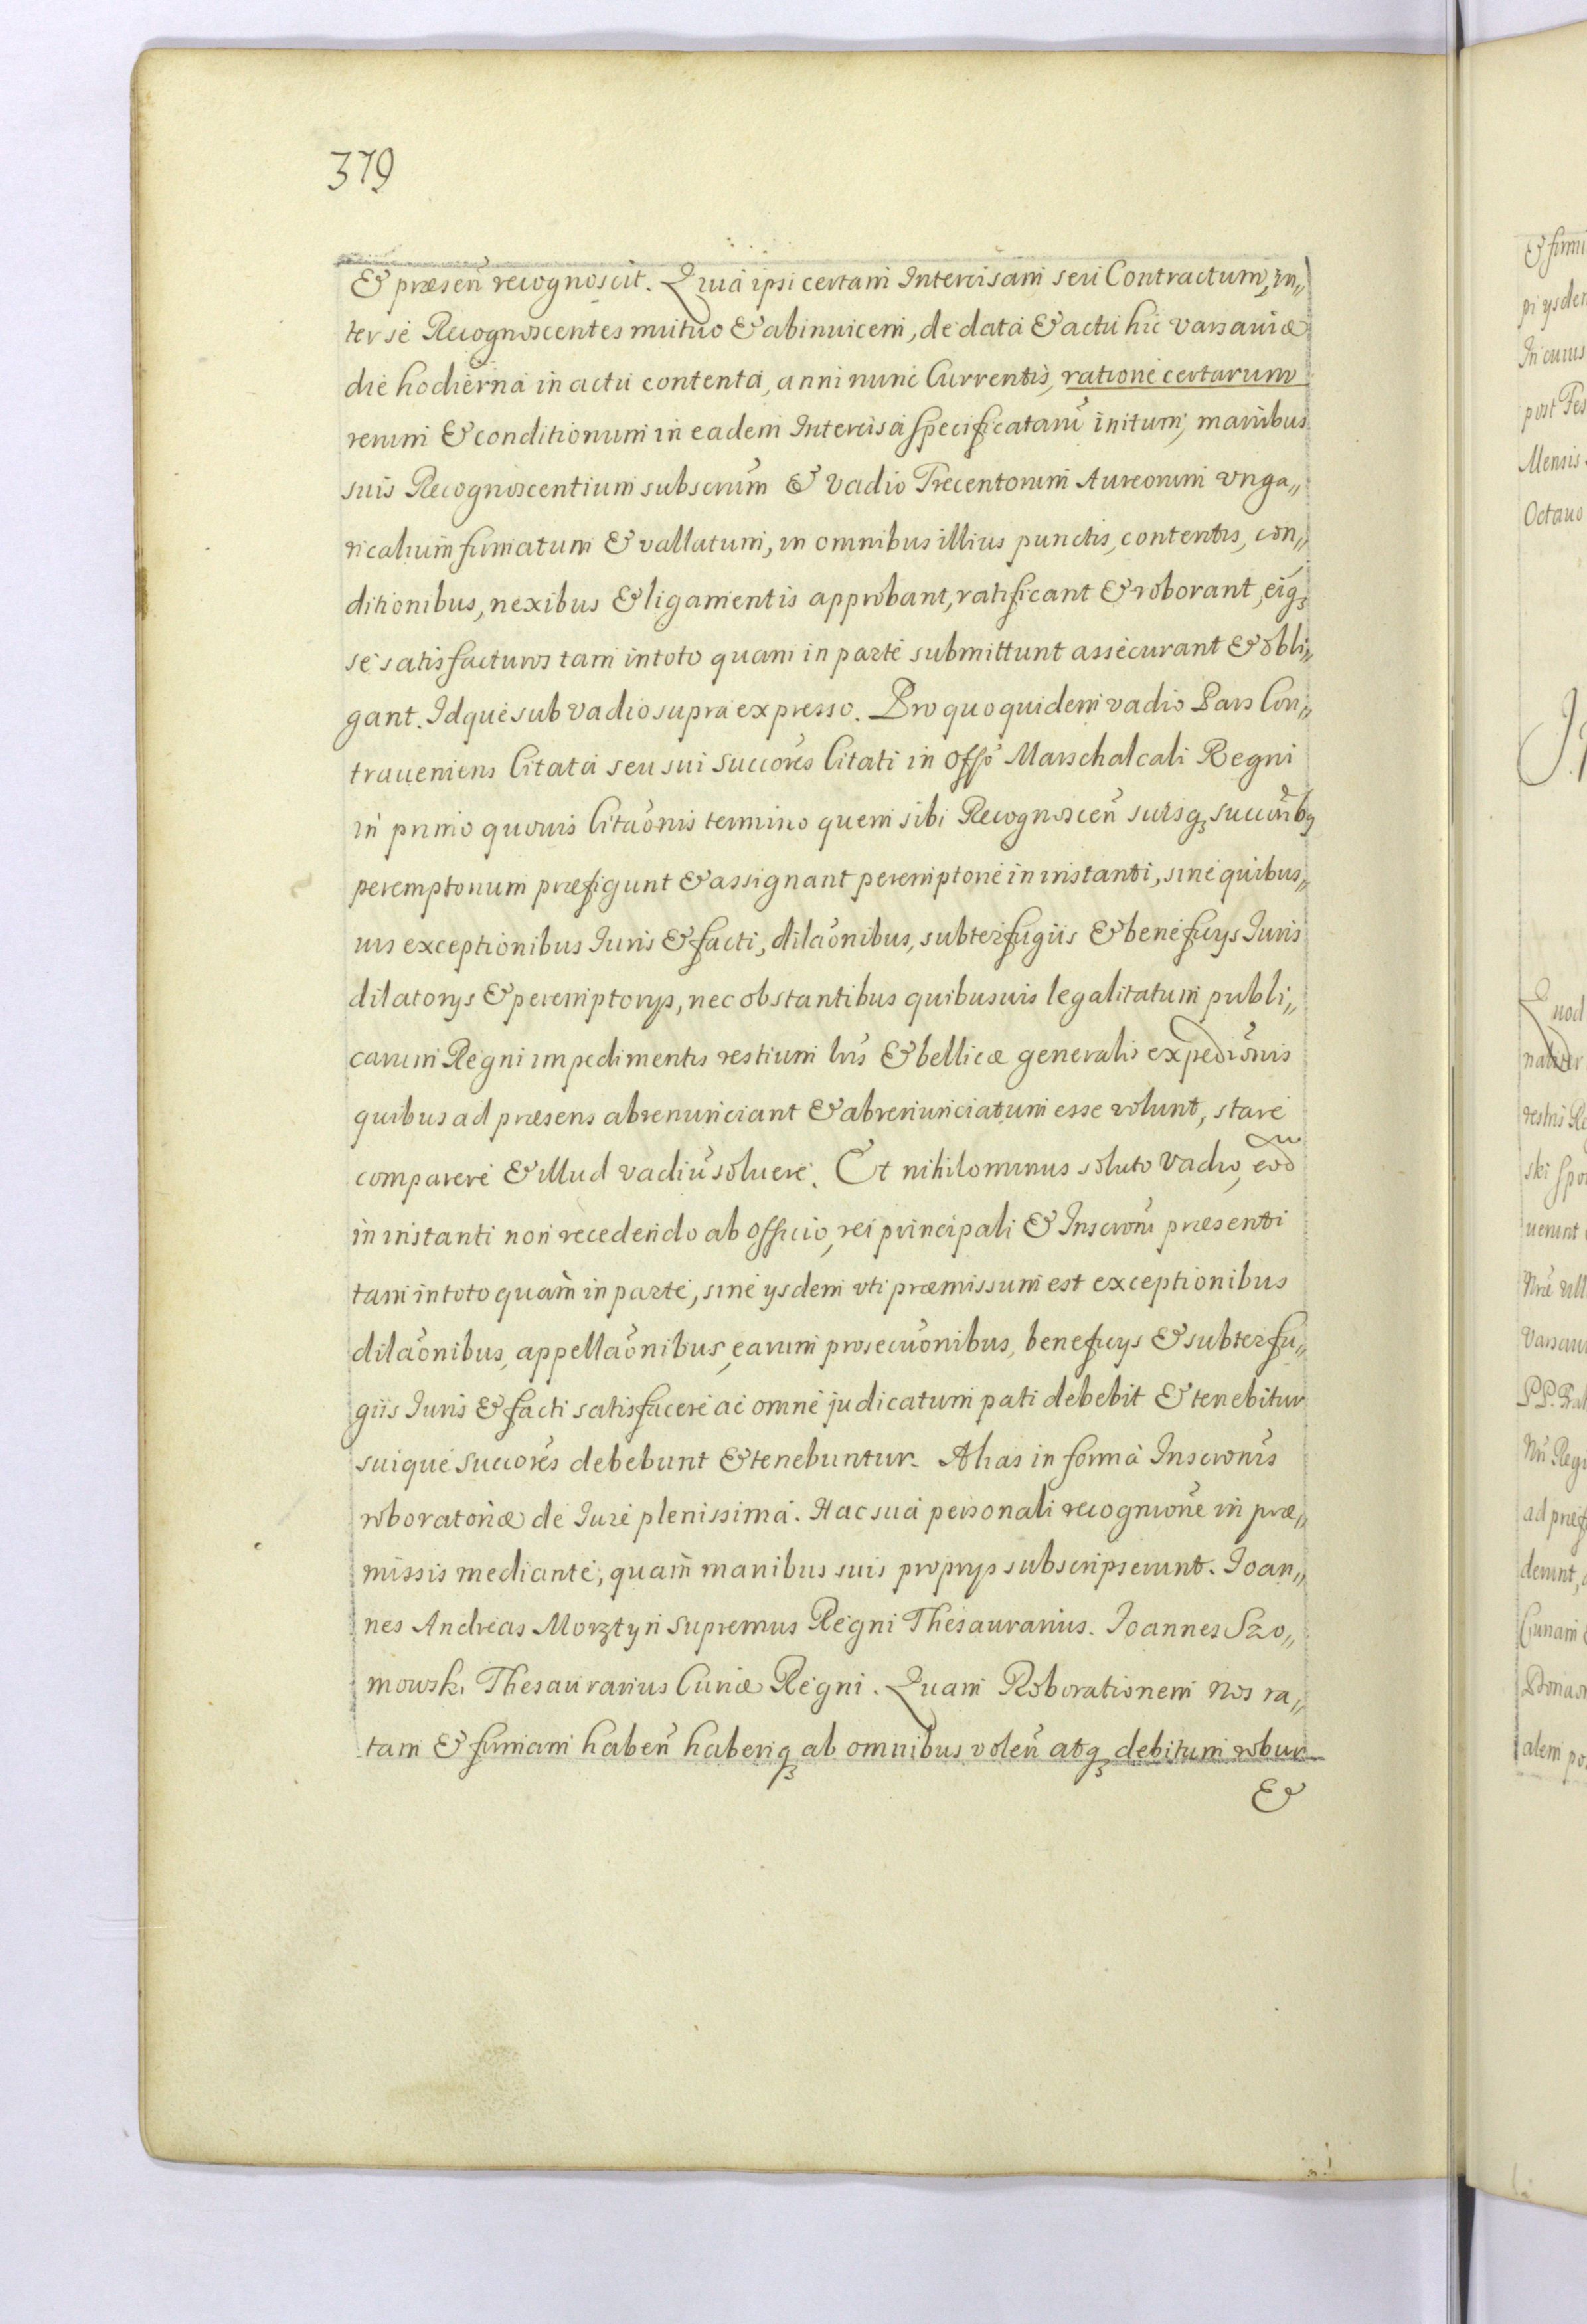 379
& præsen̄ recognoscit. Quia ipsi certam Intercisam seu Contractum, in„
ter se Recognoscentes mutuo & abinuicem, de data & actu hic Varsauiæ
die hodierna in actu contenta, anni nunc Currentis, ratione certarum
rerum & conditionum in eadem Intercisa specificatarū initum, manibus
suis Recognoscentium subscrūm & Vadio Trecentorum Aureorum Vnga„
ricalium firmatum & vallatum, in omnibus illius punctis, contentis, con„
ditionibus, nexibus & ligamentis approbant, ratificant & roborant, eiq₃
se satisfacturos tam in toto quam in parte submittunt assecurant & obli„
gant. Idque sub vadio supra expresso. Pro quo quidem vadio Pars Con„
traueniens Citata seu sui Succōres Citati in Offo Marschalcali Regni
in primo quouis Citāonis termino quem sibi Recognoscen̄ suisq₃ succōribq
peremptorium præfigunt & assignant peremptorie in instanti, sine quibus„
uis exceptionibus Iuris & facti, dilāonibus, subterfugiis & beneficys Iuris
dilatorys & peremptorys, nec obstantibus quibusuis legalitatum publi„
carum Regni impedimentis restium lrūs & bellicæ generalis expediōnis
quibus ad præsens abrenunciant & abrenunciatum esse volunt, stare
comparere & illud vadiū soluere. Et nihilominus soluto Vadio, eod
in instanti non recedendo ab Officio, rei principali & Inscrōni præsenti
tam in toto quam in parte, sine ysdem vti præmissum est exceptionibus
dilāonibus, appellāonibus, earum prosecuōnibus, beneficys & subterfu„
giis Iuris & facti satisfacere ac omne judicatum pati debebit & tenebitur
suique Succōres debebunt & tenebuntur. Alias in forma Inscrōnis
roboratoriæ de Iure plenissima. Hac sua personali recogniōne in præ„
missis mediante, quam manibus suis proprys subscripserunt. Ioan„
nes Andreas Morztyn Supremus Regni Thesaurarius. Ioannes Szo„
mowski Thesaurarius Curiæ Regni. Quam Roborationem Nos ra„
tam & firmam haben̄ haberiq₃ ab omnibus volen̄ atq₃ debitum robur
&